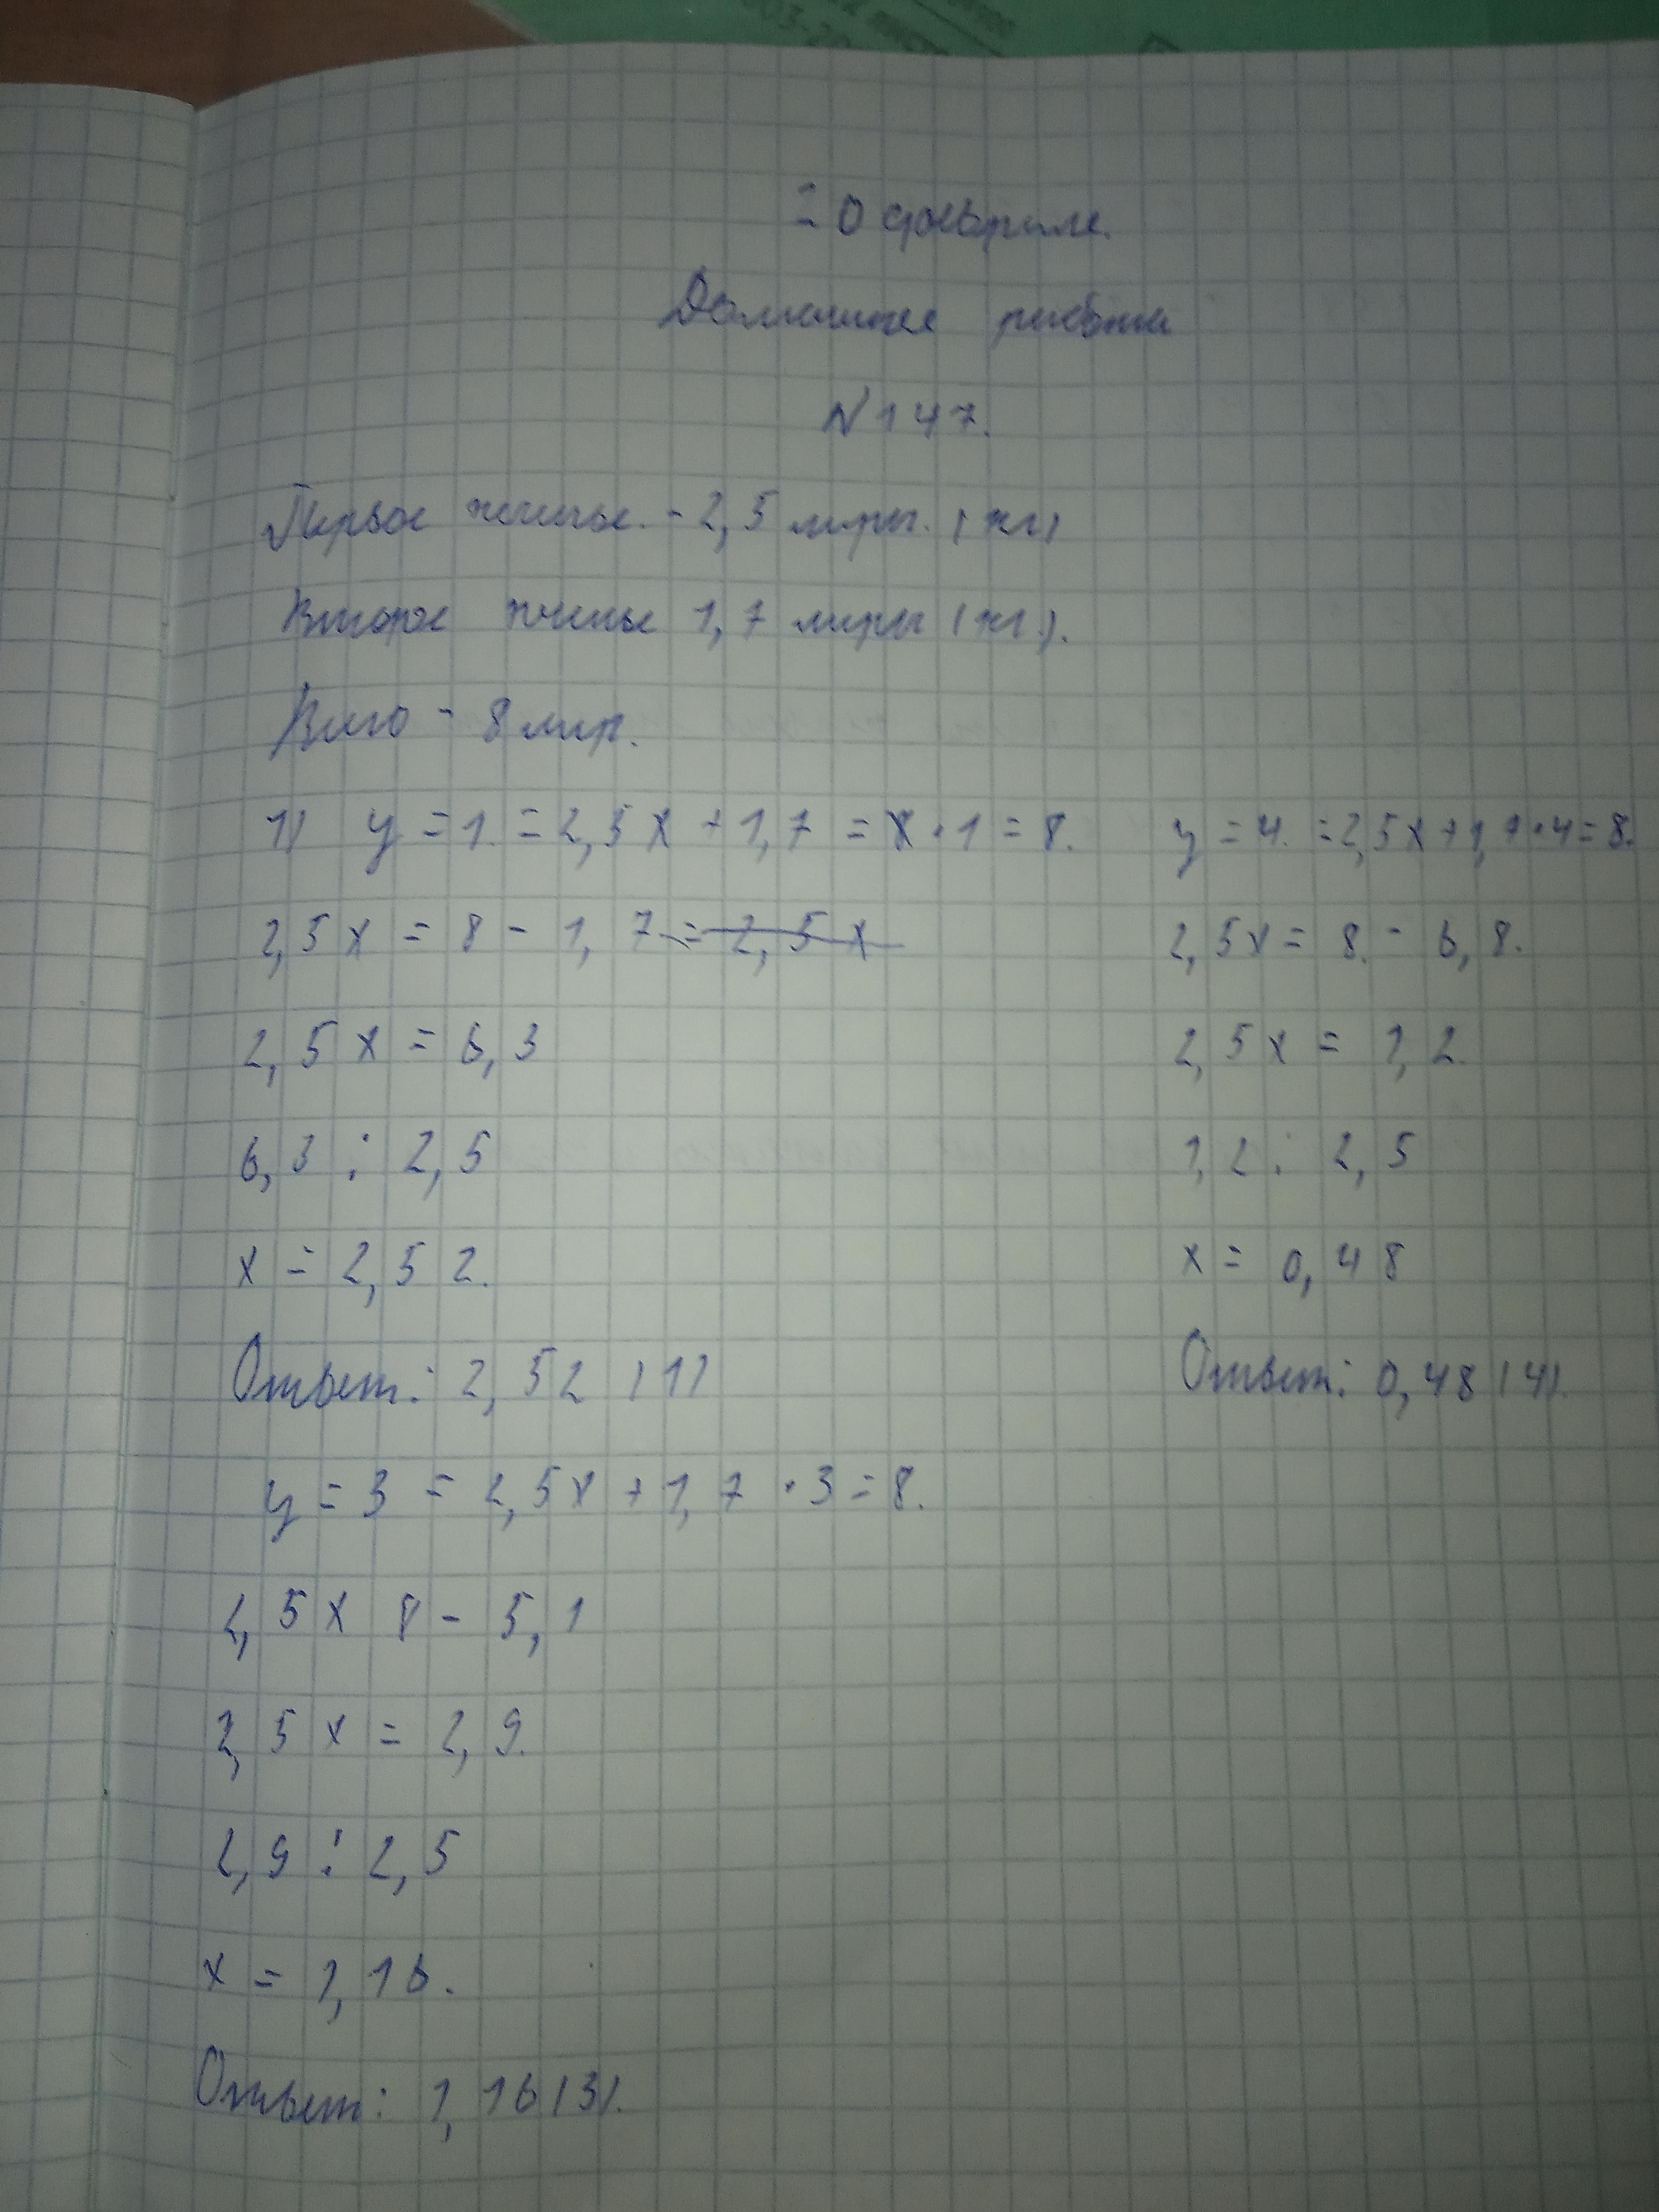 20 февраля.
Домашняя работа
N 147.
Первое печенье. - 2,5 миры. (кг)
Второе печенье 1,7 миры (кг).
Всего - 8 мир.
1) y = 1. = 2,5x + 1,7 = 8 · 1 = 8.
2,5x = 8 - 1,7 = 2,5x
2,5x = 6,3
6,3 : 2,5
x = 2,52.
Ответ: 2,52 (1)
y = 4. = 2,5x + 1,7 · 4 = 8.
2,5x = 8. - 6,8.
2,5x = 1,2.
1,2 : 2,5
x = 0,48
Ответ: 0,48 (4).
y = 3 = 2,5x + 1,7 · 3 = 8.
2,5x 8 - 5,1
2,5x = 2,9.
2,9 : 2,5
x = 1,16.
Ответ: 1,16 (3).